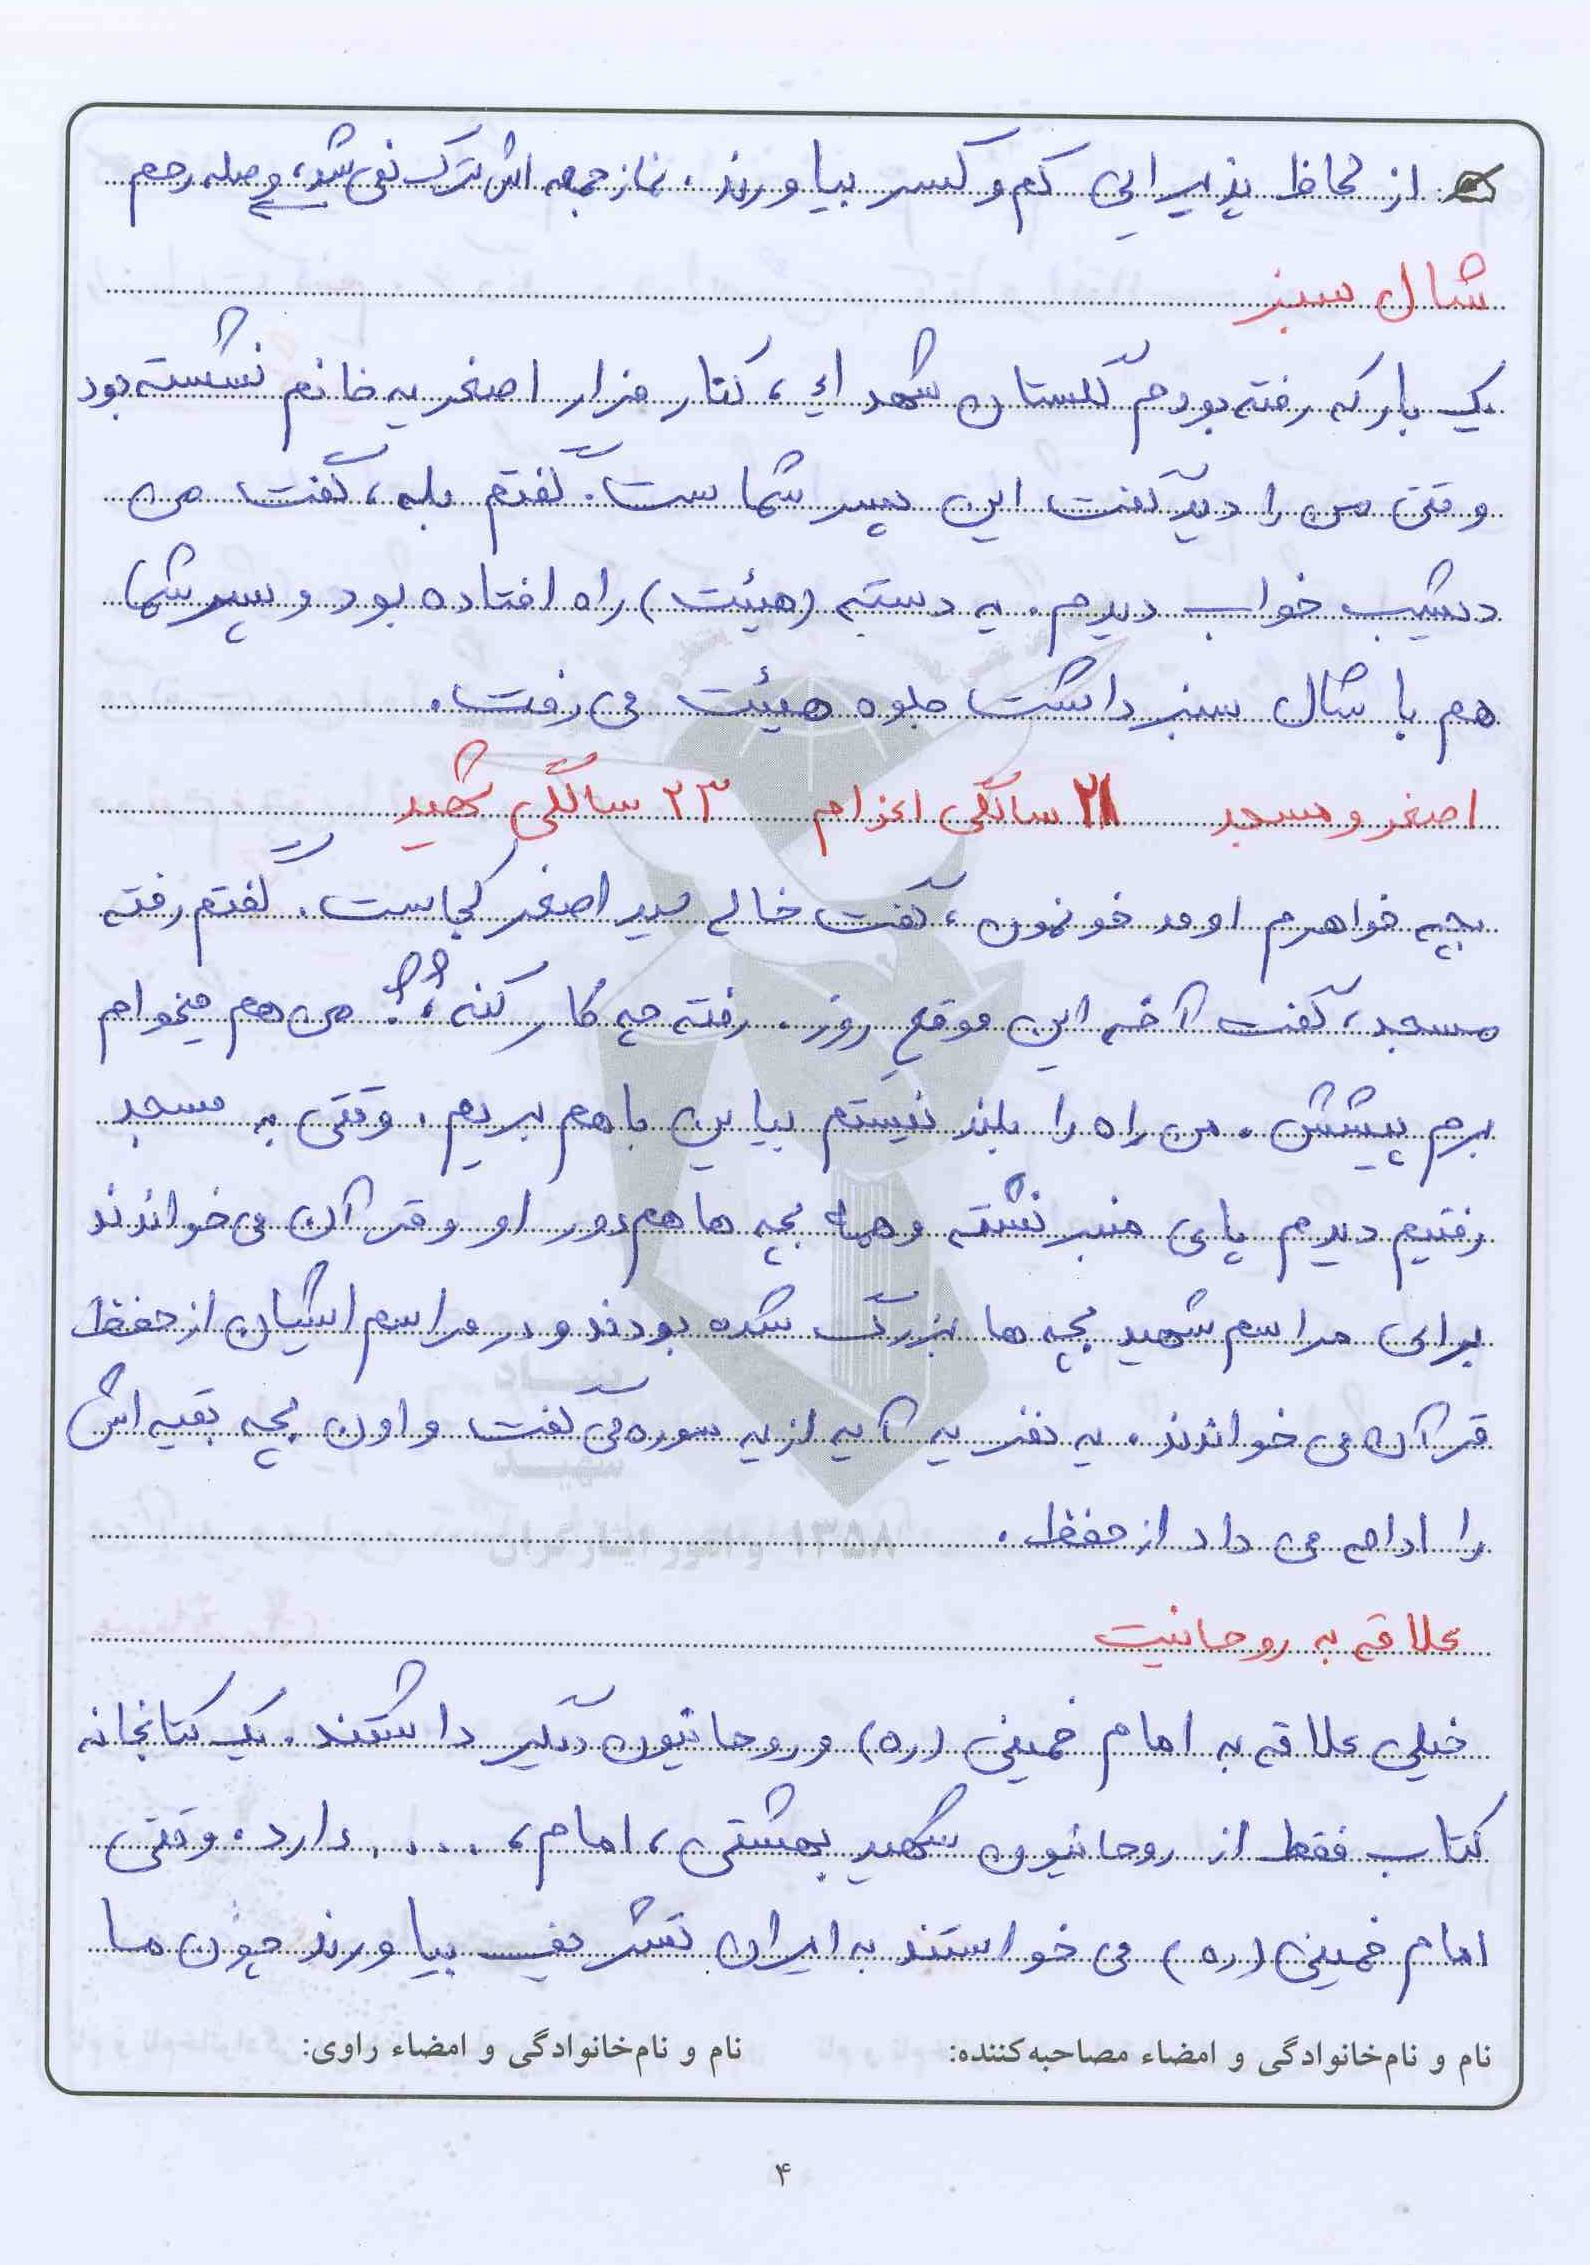 از لحاظ پذیرایی کم و کسر بیاورند. نماز جمعه اش ترک نمی شد، وصله رحم
شال سبز
یک بار که رفته بودم گلستان شهدای، کنار مزار اصغر یه خانم نشسته بود
وقتی من را دید گفت این پسر شماست. گفتم بله، گفت من
دیشب خواب دیدم. یه دسته (هیئت) راه افتاده بود و پسر شما
هم با شال سبز داشت جلوه هیئت می رفت.
اصغر و مسجد ۲۱ سالگی اعزام ۲۳ سالگی شهید
بچه خواهرم اومد خونمون، گفت خاله سید اصغر کجاست. گفتم رفته
مسجد، گفت آخه این موقع روز. رفته چه کار کنه؟؟ من هم میخوام
برم پیشش. من راه را بلند نیستم بیا بن باهم بریم. وقتی به مسجد
رفتیم دیدم پای منبر نشته و همه بچه ها هم دور او و قرآن می خواندند
برای مراسم شهید بچه ها بزرگ شده بودند و در مراسم اشیان از حفظ
قرآن می خواندند. یه نفر یه آیه از یه سوره می گفت و اون بچه بقیه اش
را ادامه می داد از حفظ.
علاقه به روحانیت
خیلی علاقه به امام خمینی (ره) و روحانیون دیگیر داشتند. یک کتابخانه
کتاب فقط از روحانیون شهید بهشتی، امام، .... دارد. وقتی
امام خمینی (ره) می خواستند به ایران تشریف بیاورند چون ما
نام و نام‌خانوادگی و امضاء مصاحبه‌کننده: نام و نام‌خانوادگی و امضاء راوی:
۴
بنیاد
شهید
و امور ایثارگران ۱۳۵۸